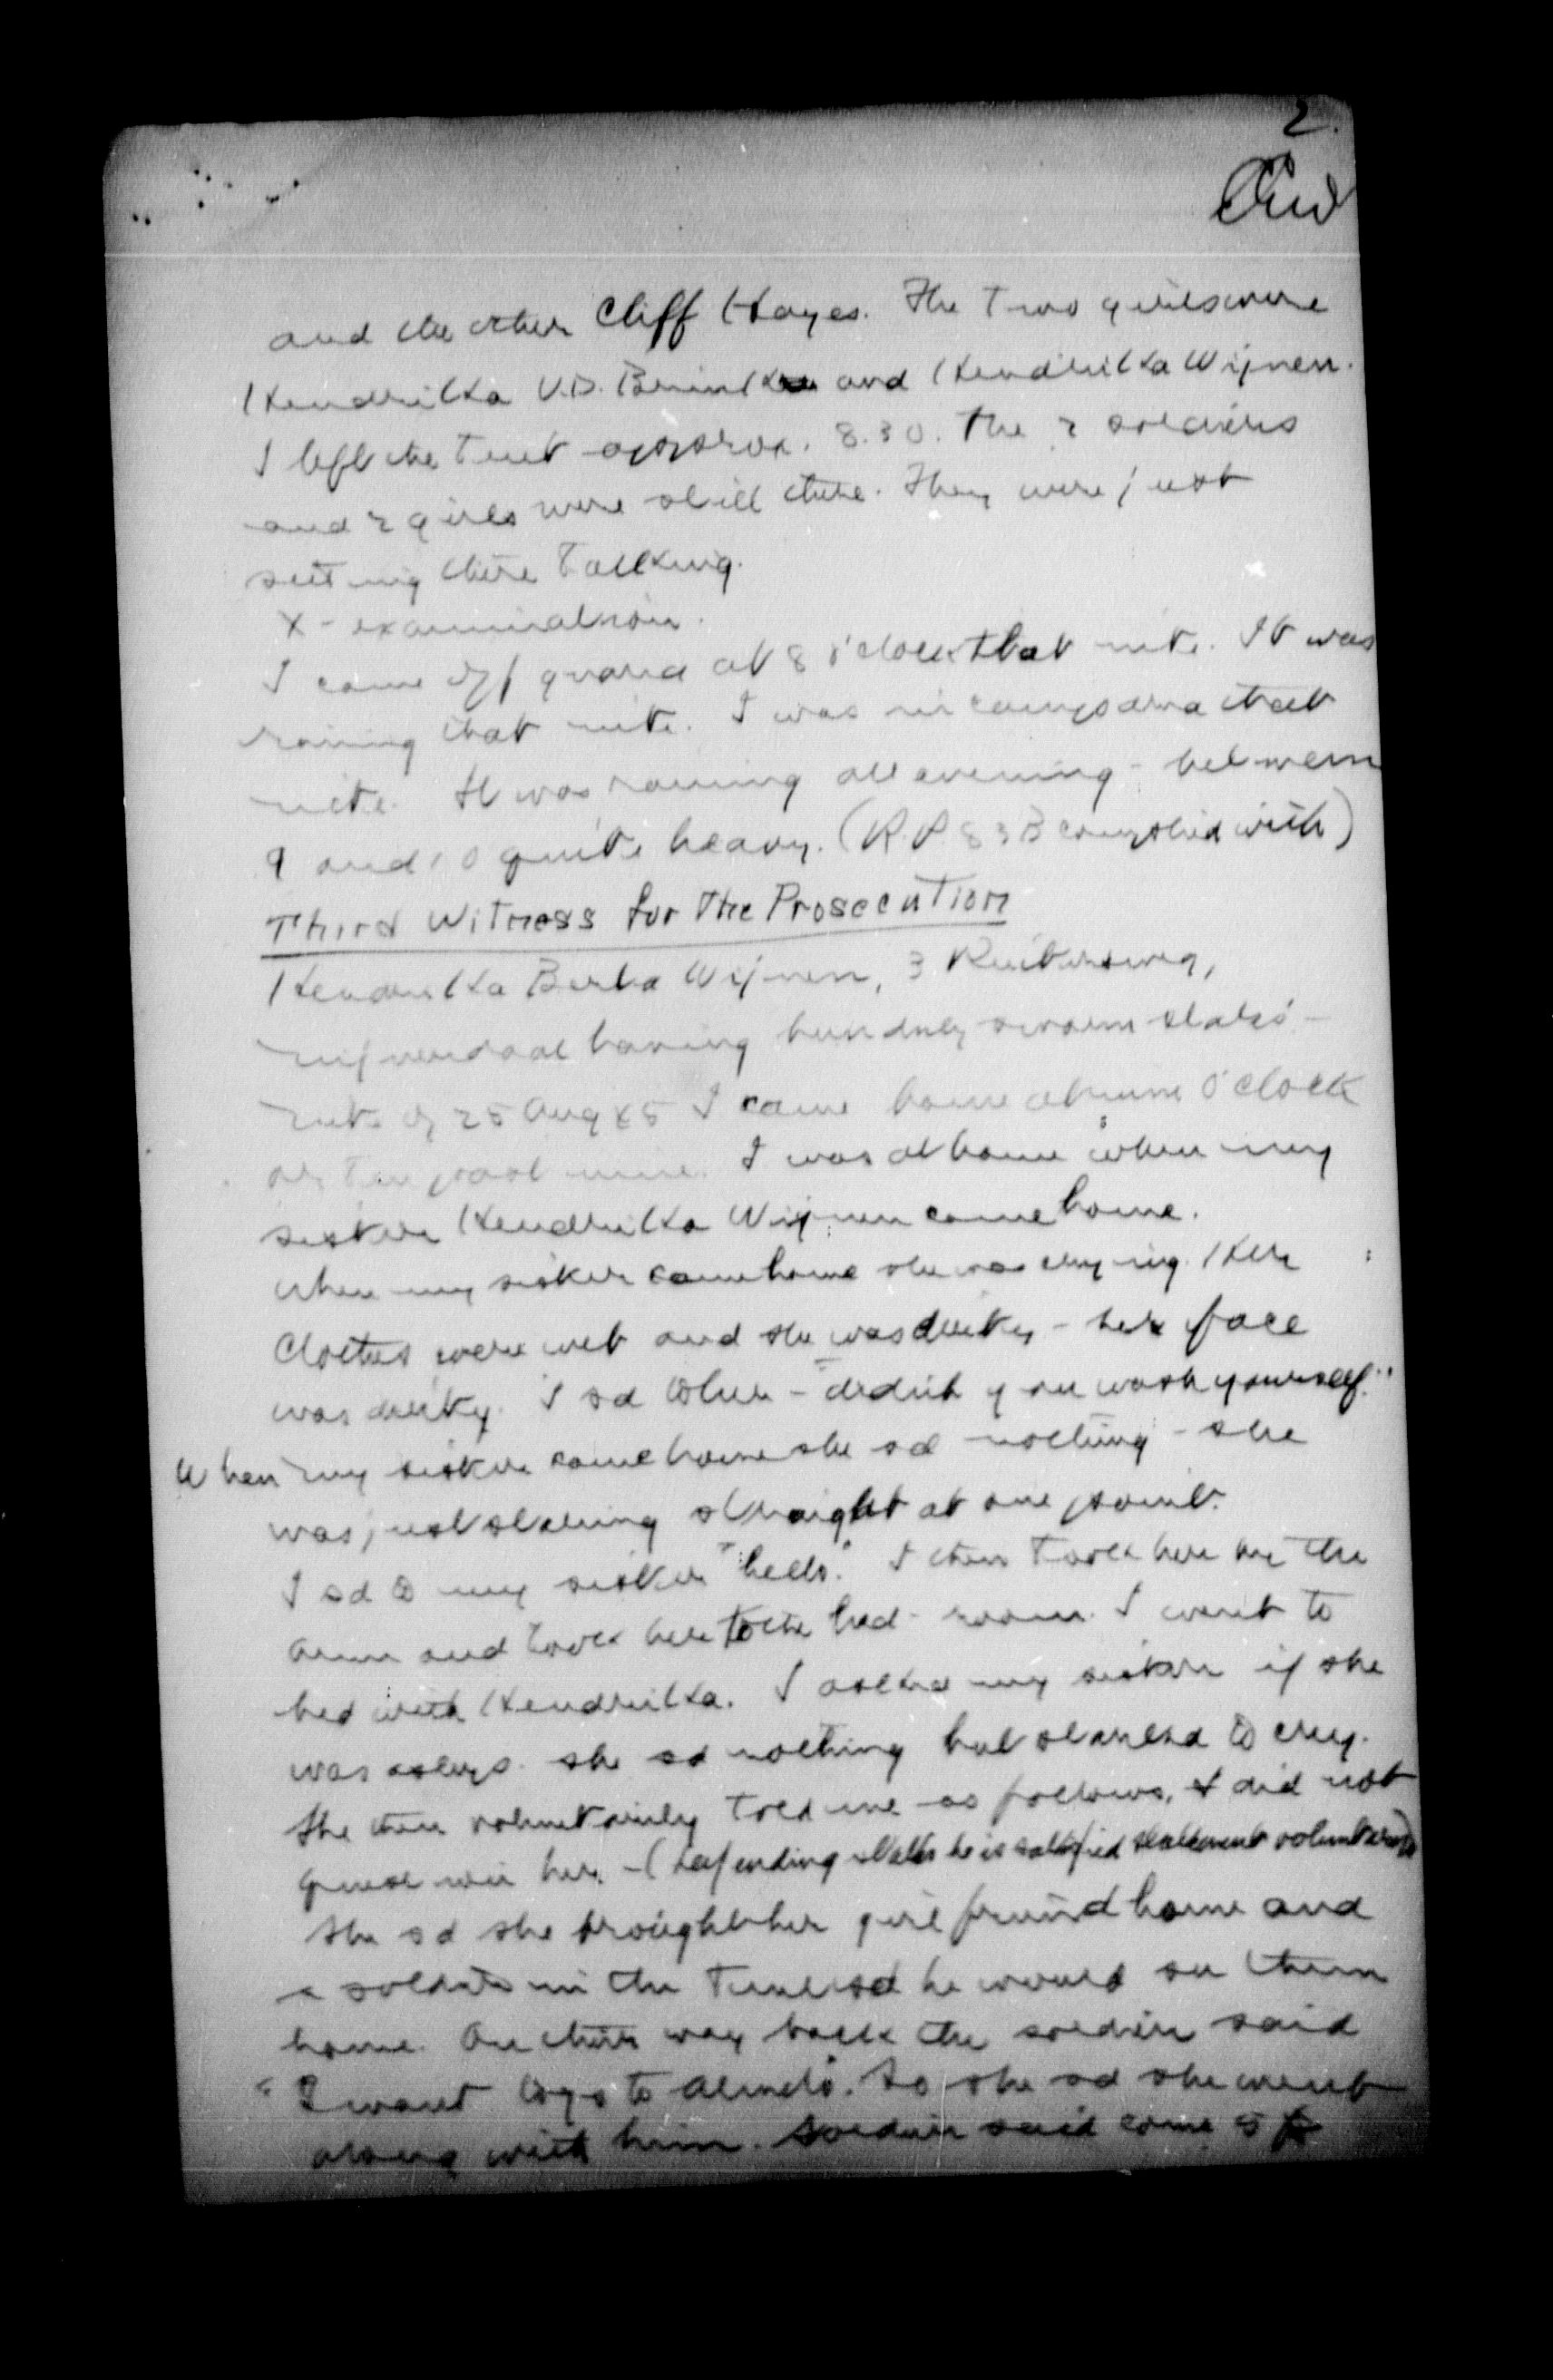 2.
and the other Cliff Hayes. The two girls were
Hendrika V.D. Brink and Hendrika Wijnen.
I left the tent approx. 8.30. The 2 soldiers
and 2 girls were still there. They were just
sitting there talking.
X-examination.
I came off guard at 8 o'clock that nite. It was
raining that nite. I was in camp area that
nite. It was raining all evening - between
9 and 10 quite heavy. (R.P. 83B complied with)
Third Witness for The Prosecution
Hendrika Berta Wijnen, 3
having been duly sworn states -
nite of 25 Aug 45 I came home at nine o'clock
or ten past nine. I was at home when my
sister Hendrika Wijnen came home.
When my sister came home she was crying. Her
clothes were wet and she was dirty - her face
was dirty. I sd to her - "didn't you wash yourself."
When my sister came home she sd nothing - she
was just staring straight at one point.
I sd to my sister "hello." I then took her by the
arm and took her to the bed-room. I went to
bed with Hendrika. I asked my sister if she
was asleep. she sd nothing but started to cry.
She then voluntarily told me as follows, I did not
her - (Defending states he is satisfied statement voluntary)
She sd she brought her girl friend home and
a soldier in the tent sd he would see them
home. On their way back the soldier said
"I want to go to Almelo". So she sd she went
along with him. Soldier said come